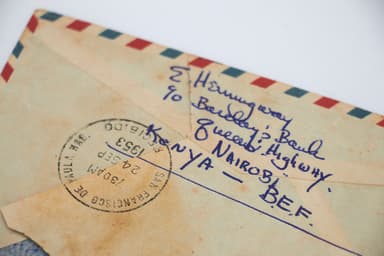 E. Hemingway
c/o Barclay's Bank
Queens Highway.
NAIROBI,
KENYA —
B.E.F.
SAN FRANCISCO DE PAULA HAB.
730AM
24 SEP
1953